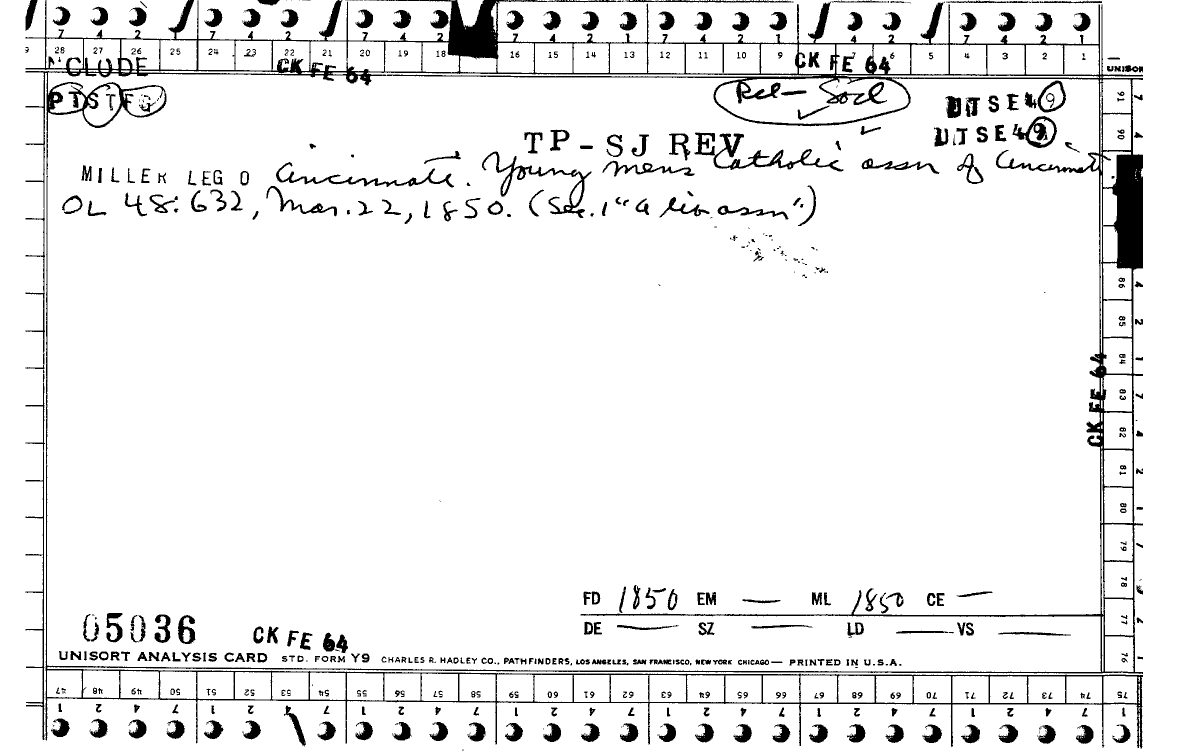 7 4 2 1 7 4 2 1 7 4 2 1 7 4 2 1 7 4 2 1 7 4 2 1
28 27 26 25 24 23 22 21 20 19 18 16 15 14 13 12 11 10 9 7 6 5 4 3 2 1
CLUDE CK FE 64 CK FE 64 UNISOR
PTSTFG Rel - Socl UTSE49
UTSE49
TP-SJ REV
MILLER LEG O Cincinnati. Young men's Catholic assn of Cincinnati.
OL 48:632, Mar. 22, 1850. (Sec. 1 "a lib assn")
91 90 86 85 84 83 82 81 80 79 78 77 76
CK FE 64
FD 1850 EM — ML 1850 CE —
DE — SZ — LD — VS —
05036 CK FE 64
UNISORT ANALYSIS CARD STD. FORM Y9 CHARLES R. HADLEY CO., PATHFINDERS, LOS ANGELES, SAN FRANCISCO, NEW YORK CHICAGO — PRINTED IN U.S.A.
47 48 49 50 51 52 53 54 55 56 57 58 59 60 61 62 63 64 65 66 67 68 69 70 71 72 73 74 75
1 2 4 7 1 2 4 7 1 2 4 7 1 2 4 7 1 2 4 7 1 2 4 7 1 2 4 7 1